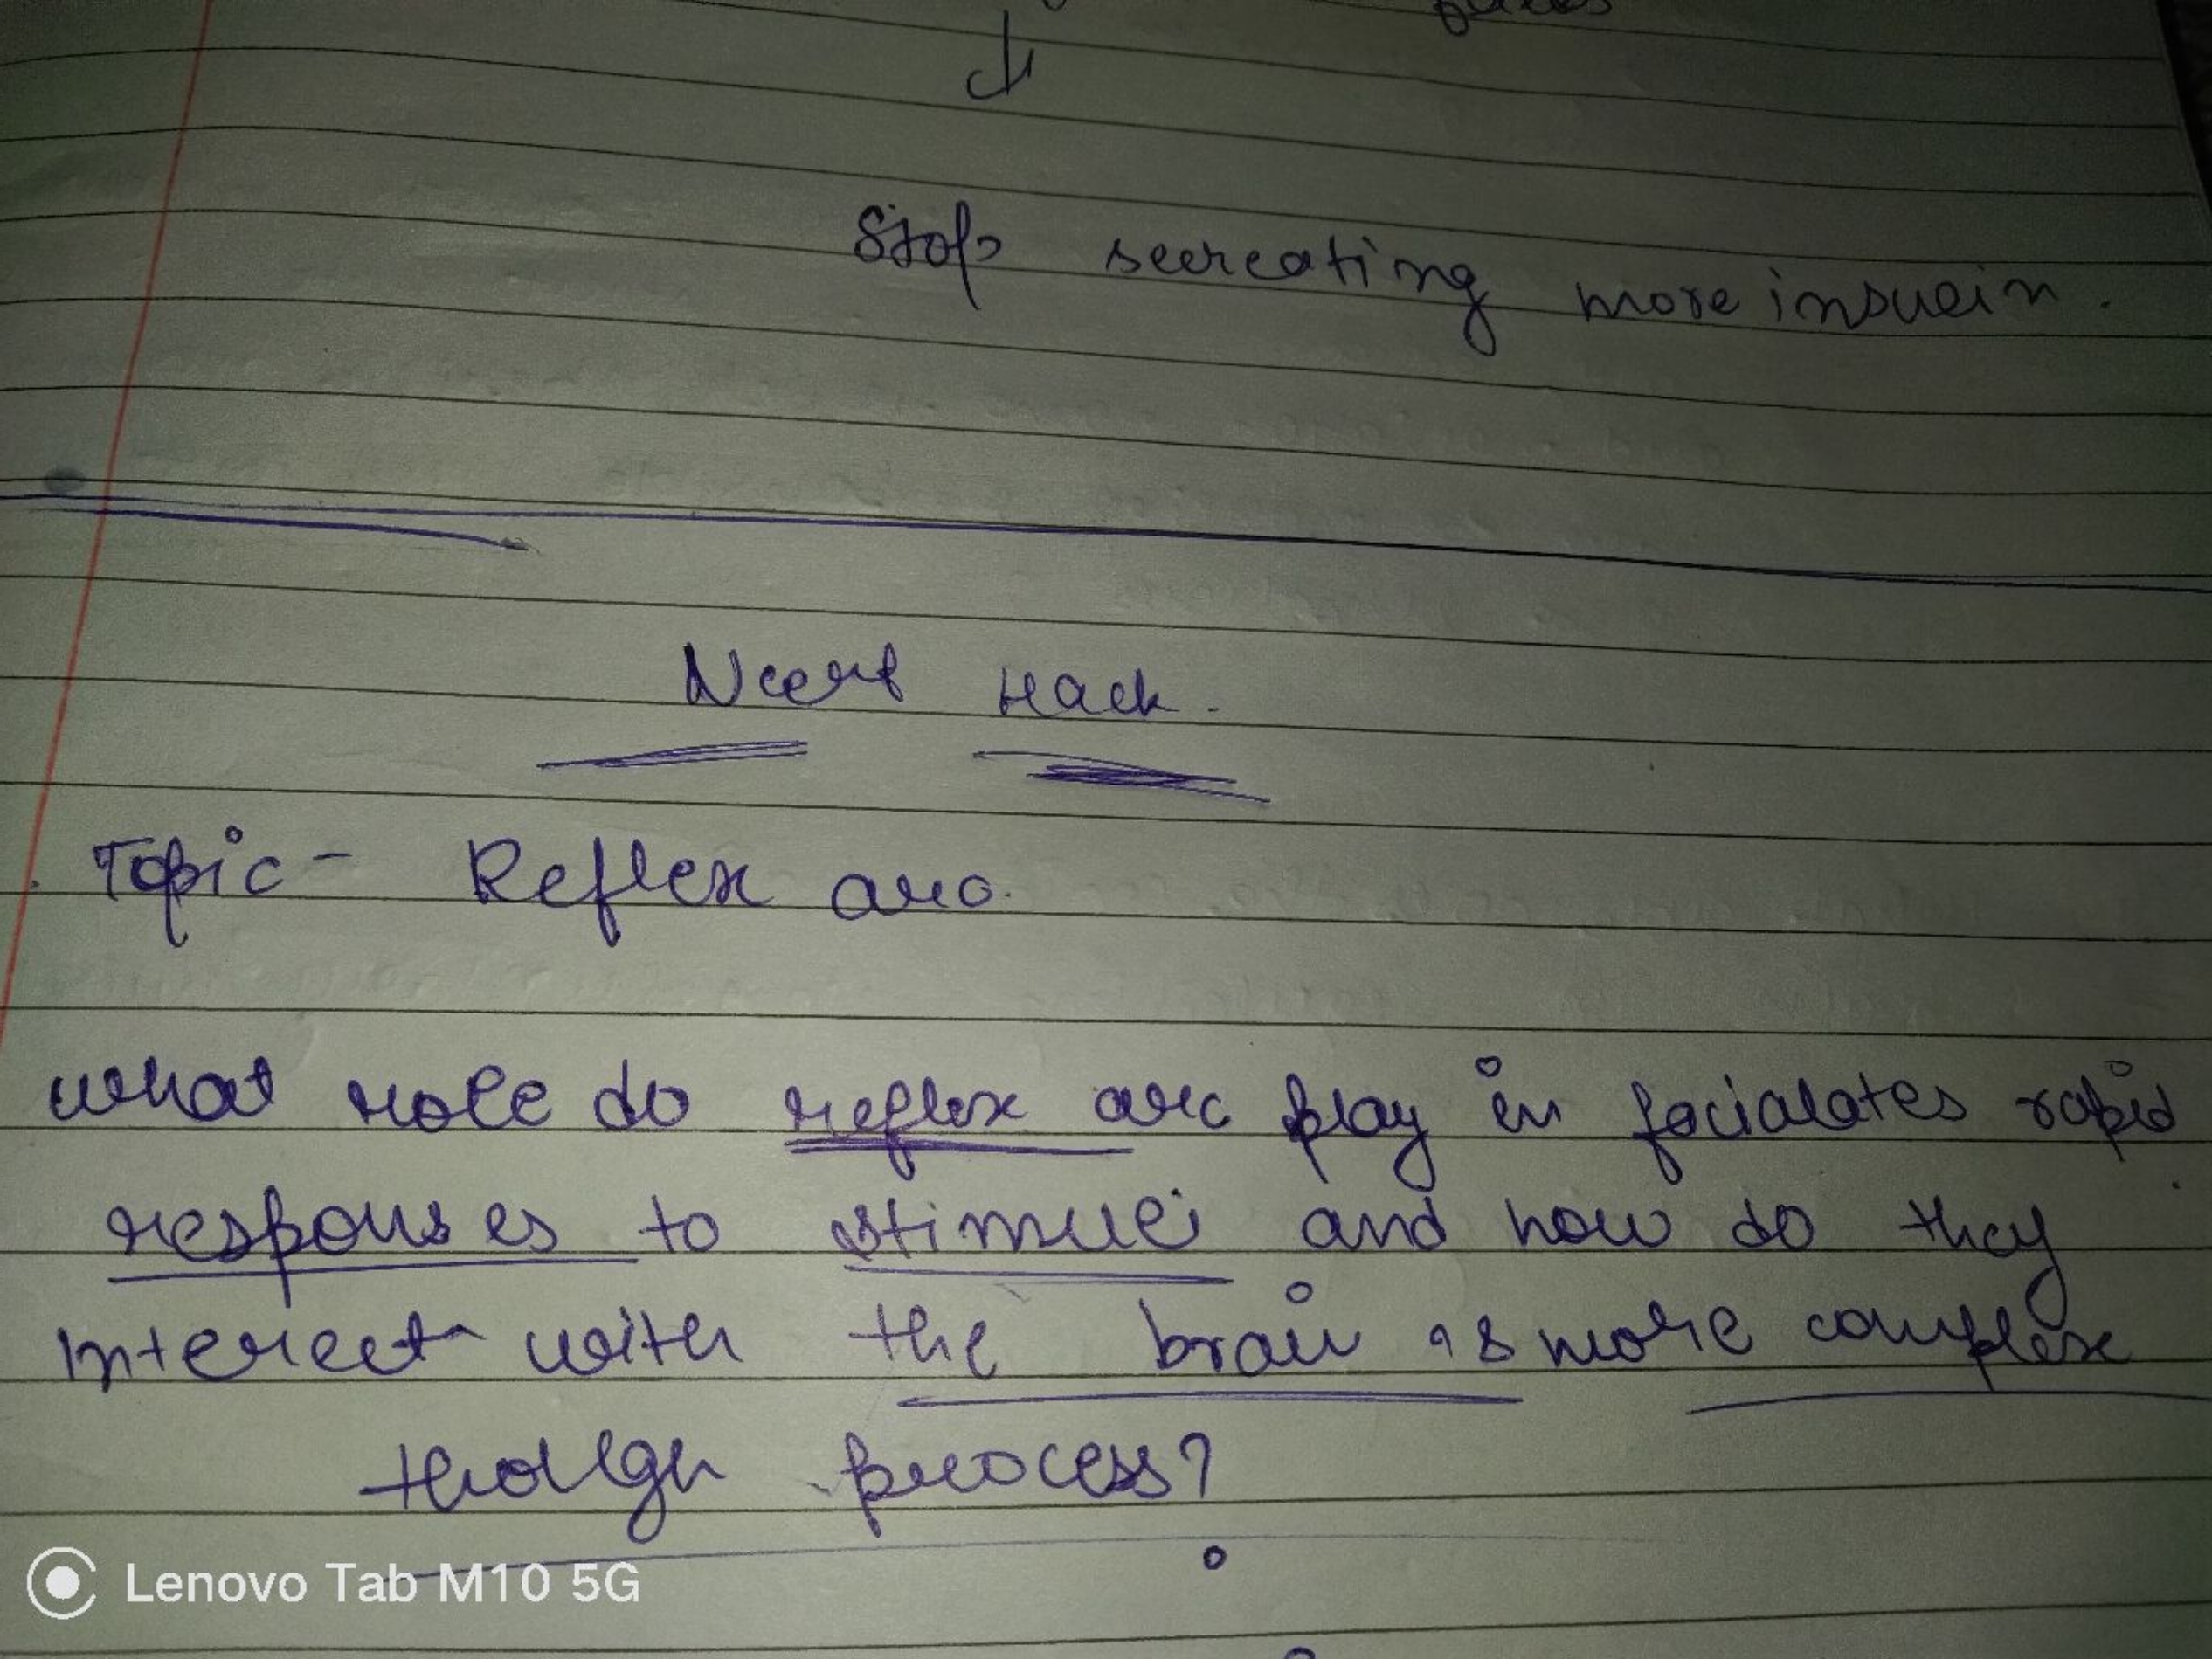 Stop secreating more insulin.
Ncert Hack.
Topic - Reflex arc.
what role do reflex arc play in facialates rapid
responses to stimuli and how do they
interect with the brain is more complex
though process?
Lenovo Tab M10 5G